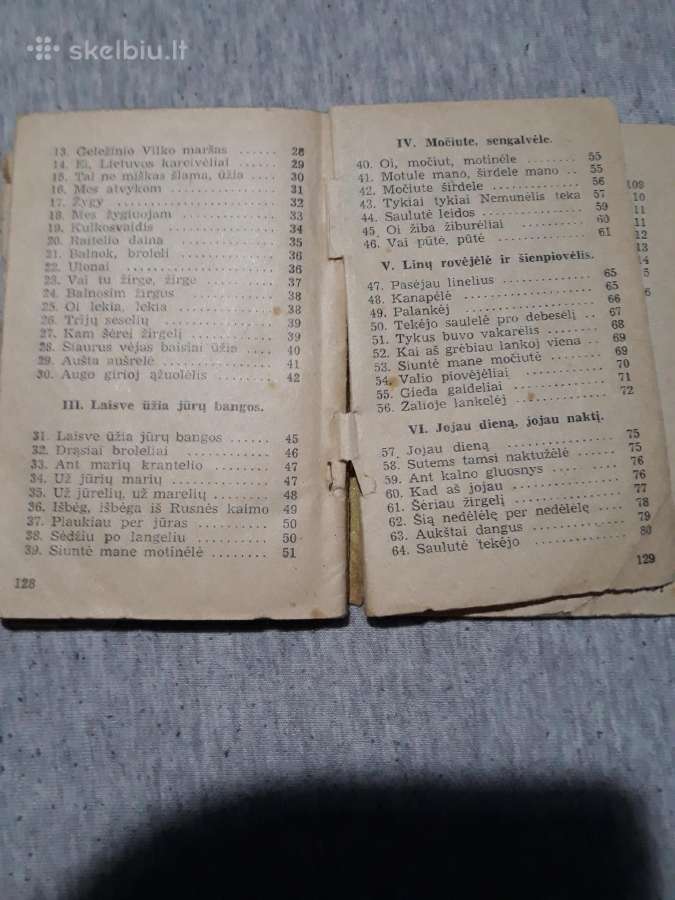 skelbiu.lt
13. Geležinio Vilko maršas ..... 28
14. Ei, Lietuvos kareivėliai ..... 29
15. Tai ne miškas šlama, ūžia ... 30
16. Mes atvykom ............ 31
17. Žygy ................ 32
18. Mes žygiuojam .......... 33
19. Kulkosvaidis ............ 34
20. Raitelio daina .......... 35
21. Balnok, broleli .......... 36
22. Ulonai ................ 36
23. Vai tu žirge, žirge ........ 37
24. Balnosim žirgus .......... 38
25. Oi lekia, lekia .......... 38
26. Trijų seselių ............ 39
27. Kam šėrei žirgelį ........ 39
28. Šiaurus vėjas baisiai ūžia .. 40
29. Aušta aušrelė ............ 41
30. Augo girioj ąžuolėlis ...... 42
III. Laisve ūžia jūrų bangos.
31. Laisve ūžia jūrų bangos .... 45
32. Drąsiai broleliai .......... 46
33. Ant marių krantelio ...... 47
34. Už jūrių marių .......... 47
35. Už jūrelių, už marelių .... 48
36. Išbėg, išbėga iš Rusnės kaimo 49
37. Plaukiau per jūras ........ 50
38. Sėdžiu po langeliu ........ 50
39. Siuntė mane motinėlė ...... 51
128
IV. Močiute, sengalvėle.
40. Oi, močiut, motinėle ...... 55
41. Motule mano, širdele mano .. 55
42. Močiute širdele .......... 56
43. Tykiai tykiai Nemunėlis teka 57
44. Saulutė leidos .......... 59
45. Oi žiba žiburėliai ........ 60
46. Vai pūtė, pūtė .......... 61
V. Linų rovėjėlė ir šienpiovėlis.
47. Pasėjau linelius .......... 65
48. Kanapėlė .............. 65
49. Palankėj .............. 66
50. Tekėjo saulelė pro debesėlį .. 67
51. Tykus buvo vakarėlis ...... 68
52. Kai aš grėbiau lankoj viena .. 69
53. Siuntė mane močiutė ...... 69
54. Valio piovėjėliai .......... 70
55. Gieda gaideliai .......... 71
56. Žalioje lankelėj .......... 72
VI. Jojau dieną, jojau naktį.
57. Jojau dieną ............ 75
58. Sutems tamsi naktužėlė .... 75
59. Ant kalno gluosnys ........ 76
60. Kad aš jojau ............ 76
61. Šėriau žirgelį ............ 77
62. Šią nedėlėlę per nedėlėlę .... 78
63. Aukštai dangus .......... 79
64. Saulutė tekėjo .......... 80
129
109
10
11
11
12
13
14
5
6